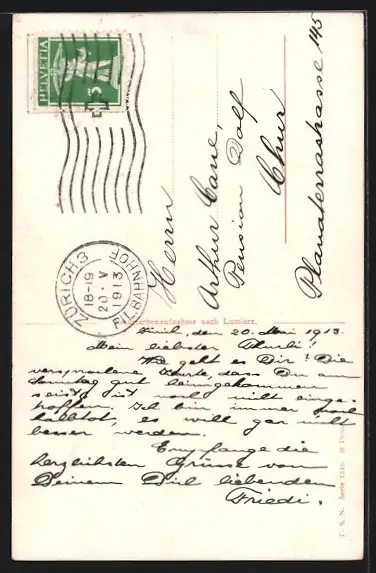 HELVETIA
5
ZÜRICH 3
18-19
20. V
1913
FIL. BAHNHOF
Herrn
Arthur
Pension Dolf
Chur
Planaterrastrasse 145
nach Lumiere.
Zürich, den 20. Mai 1913.
Mein liebster
Wie geht es Dir? Die
versprochene Karte, dass Du am
Sonntag gut heimgekommen
seist, ist noch nicht einge-
troffen. Ich bin immer noch
halbtot, es will gar nicht
besser werden.
Empfange die
herzlichsten Grüsse von
Deinem Dich liebenden
Friedi.
T. S. N. Serie